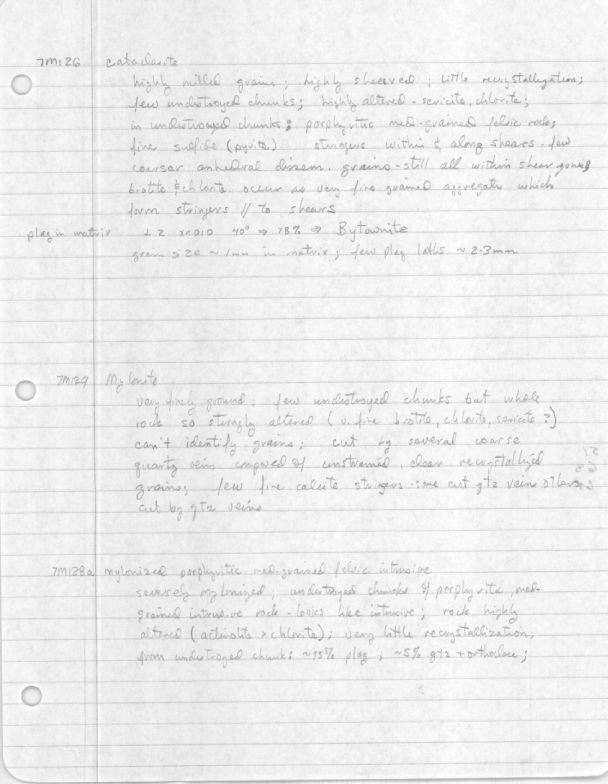 7M126 cataclasite
highly milled grains; highly sheared; little recrystallization;
few undestroyed chunks; highly altered - sericite, chlorite;
in undestroyed chunks; porphyritic med-grained felsic rock;
fine sulfide (pyrite) stringers within & along shears - few
coarser anhedral dissem. grains - still all within shear zones
biotite & chlorite occur as very fine grained aggregate which
form stringers // to shears
plag in matrix ⊥ 40° ⇒ 78% ⇒ Bytownite
grain size ~ 1mm in matrix; few plag laths ~ 2-3mm
7M129 Mylonite
very finely ground; few undestroyed chunks but whole
rock so strongly altered (v. fine biotite, chlorite, sericite?)
can't identify grains; cut by several coarse
quartz veins composed of unstrained, clear recrystallized
grains; few fine calcite stringers - some cut qtz vein others
cut by qtz veins
7M128a mylonized porphyritic med-grained felsic intrusive
severely mylonized; undestroyed chunks of porphyritic, med-
grained intrusive rock - looks like intrusive; rock highly
altered (actinolite > chlorite); very little recrystallization;
from undestroyed chunks ~95% plag; ~5% qtz + orthoclase;